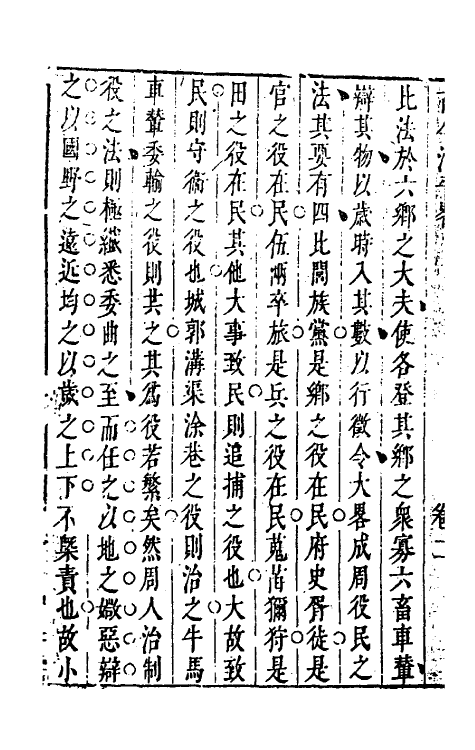 比法於六鄉之大夫使各登其鄉之衆寡六畜車輦
辯其物以歲時入其數以行徵令大畧成周役民之
法其要有四比閭族黨是鄉之役在民府史胥徒是
官之役在民伍兩卒旅是兵之役在民蒐苗獮狩是
田之役在民其他大事致民則追捕之役也大故致
民則守衛之役也城郭溝渠涂巷之役則治之牛馬
車輦委輸之役則共之其爲役若繁矣然周人治制
役之法則極纖悉委曲之至而任之以地之媺惡辯
之以國野之遠近均之以歲之上下不槩責也故小
卷二